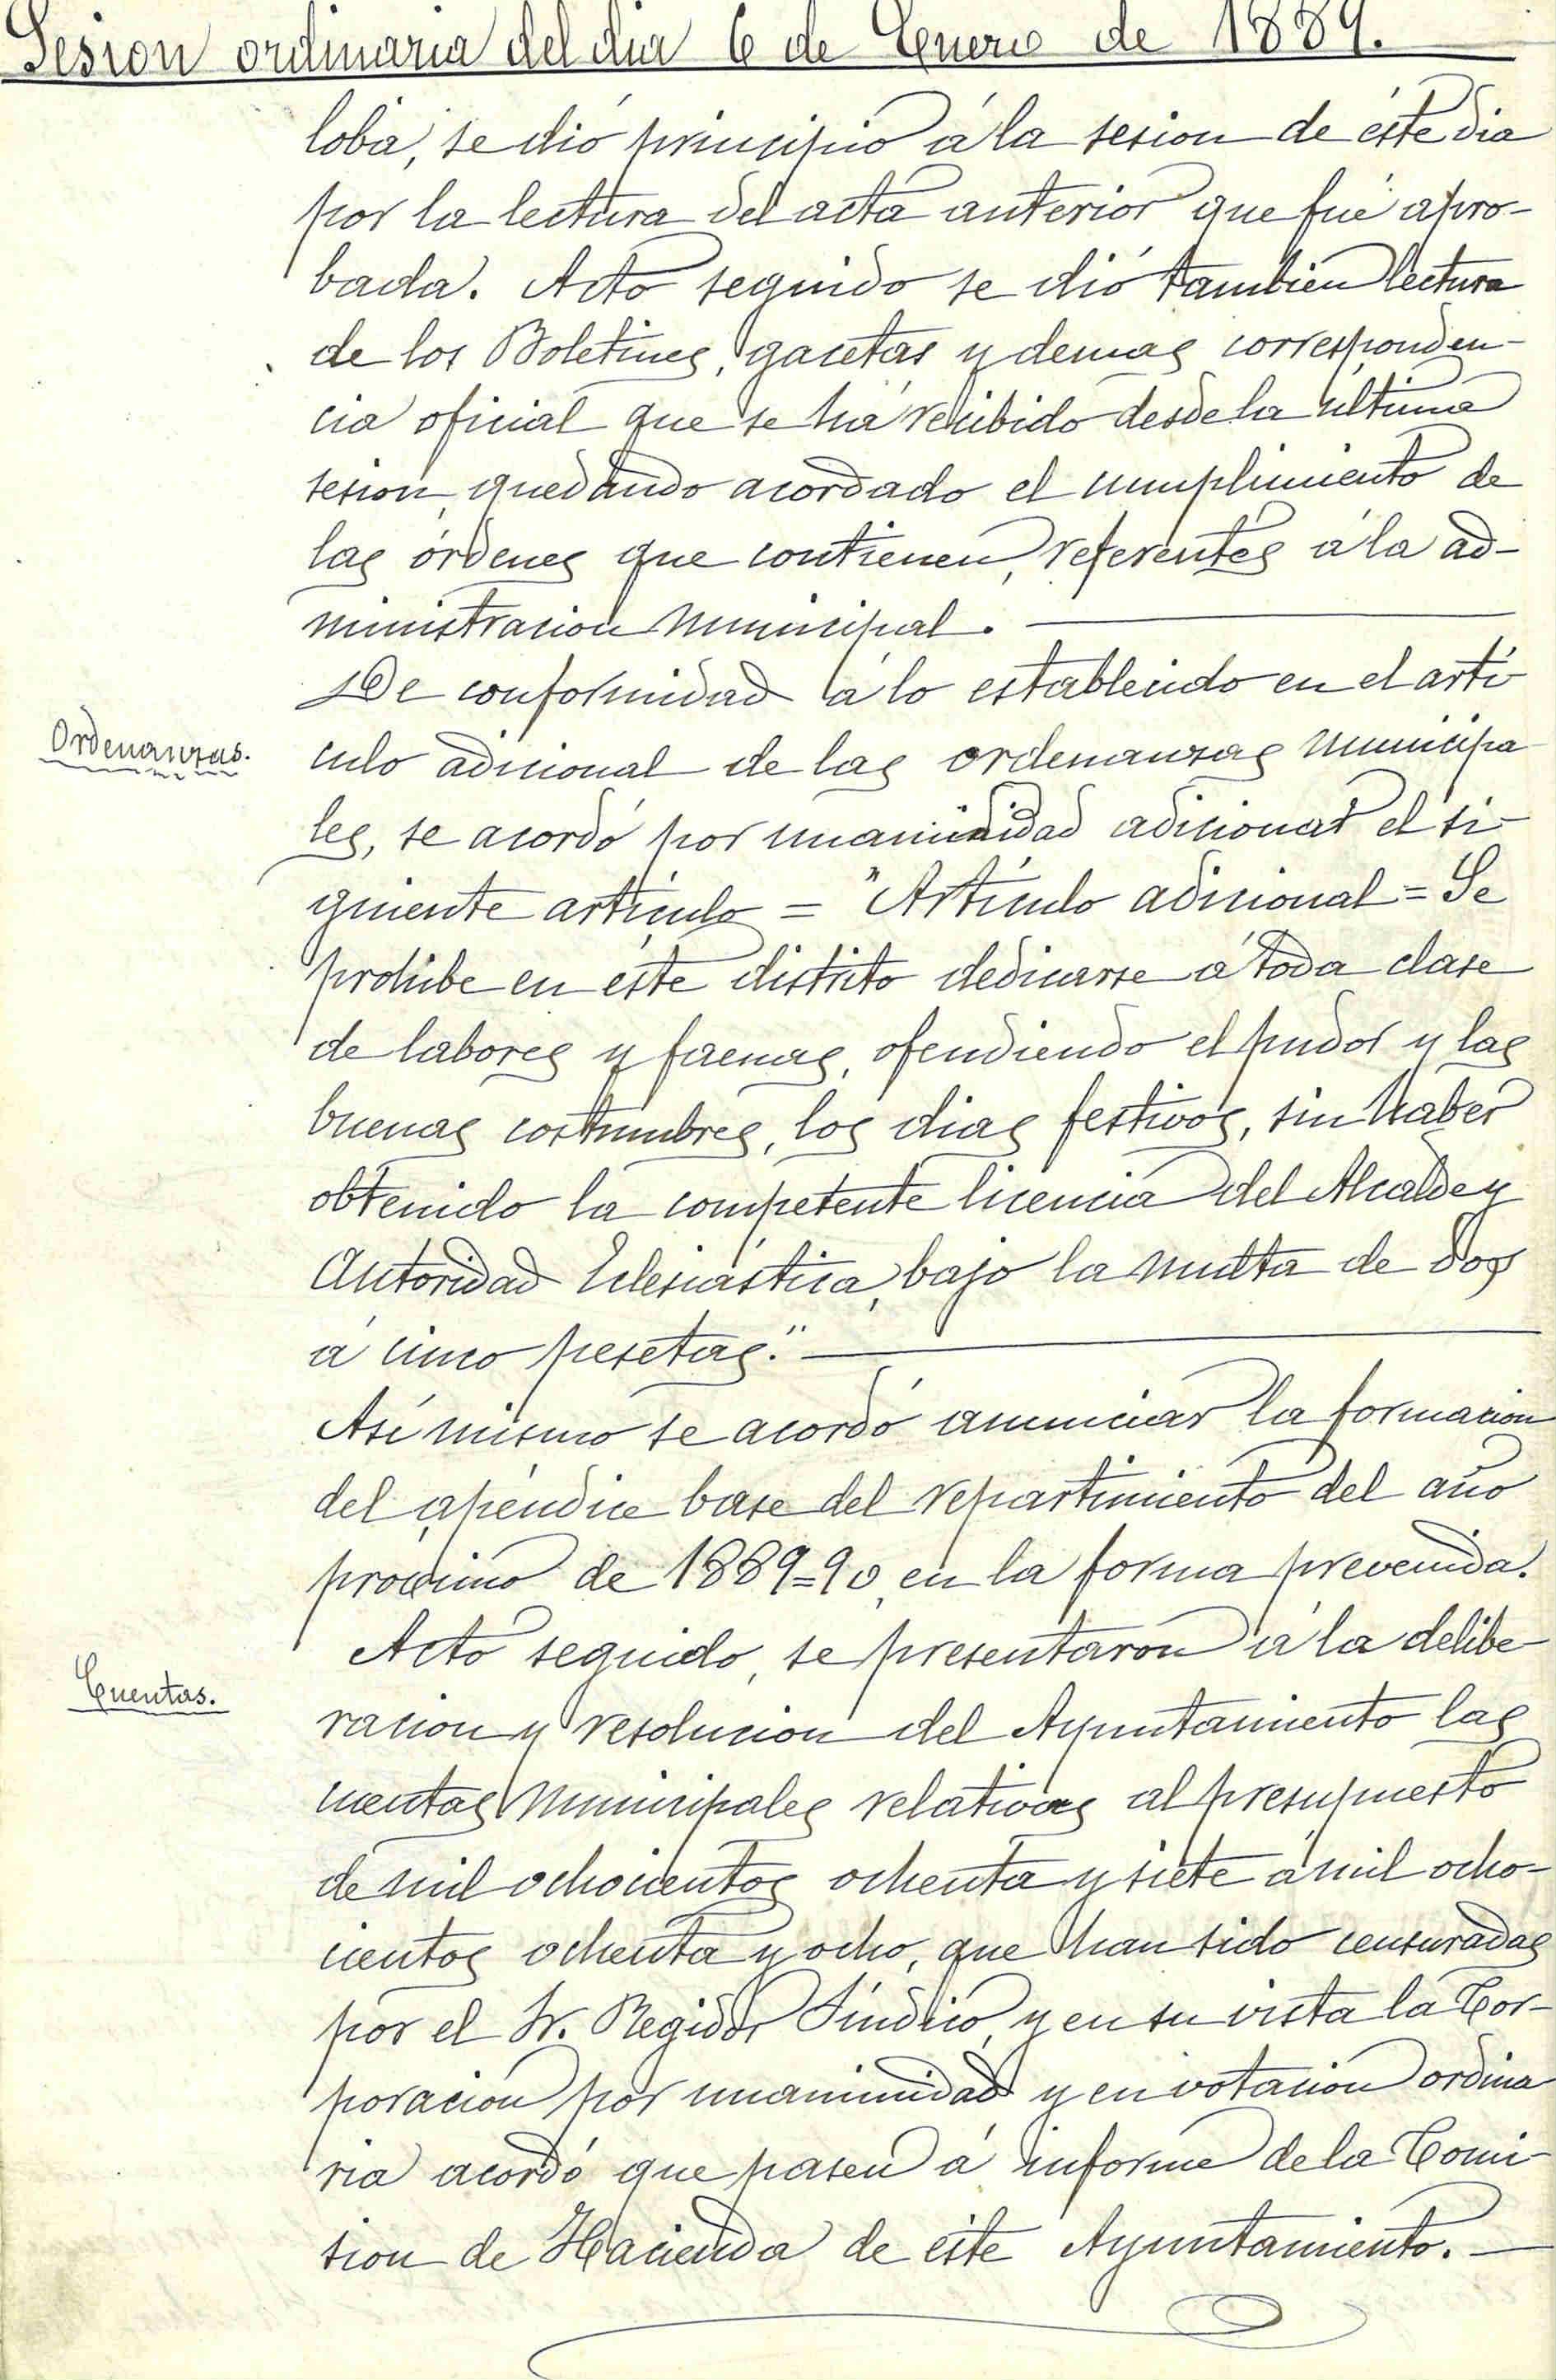 Sesion ordinaria del dia 6 de Enero de 1889.
loba, se dió principio á la sesion de éste dia
por la lectura del acta anterior que fué apro-
bada. Acto seguido se dió tambien lectura
de los Boletines, gacetas y demas corresponden-
cia oficial que se há recibido desde la última
sesion, quedando acordado el cumplimiento de
las órdenes que contienen, referentes á la ad-
ministracion Municipal.
De conformidad á lo establecido en el artí
Ordenanzas.
culo adicional de las ordenanzas Municipa
les, se acordó por unanimidad adicionar el si-
guiente artículo = "Artículo adicional = Se
prohibe en éste distrito dedicarse á toda clase
de labores y faenas, ofendiendo el pudor y las
buenas costumbres, los dias festivos, sin haber
obtenido la competente licencia del Alcalde y
Autoridad Eclesiástica, bajo la multa de dos
á cinco pesetas."
Asi mismo se acordó anunciar la formacion
del apéndice base del repartimiento del año
proximo de 1889=90, en la forma prevenida.
Acto seguido, se presentaron á la delibe-
Cuentas.
racion y resolucion del Ayuntamiento las
cuentas Municipales relativas al presupuesto
de mil ochocientos ochenta y siete á mil ocho-
cientos ochenta y ocho, que han sido censuradas
por el Sr. Regidor Síndico, y en su vista la Cor-
poracion por unanimidad y en votacion ordina
ria acordó que pasen á informe de la Comi-
sion de Hacienda de éste Ayuntamiento.